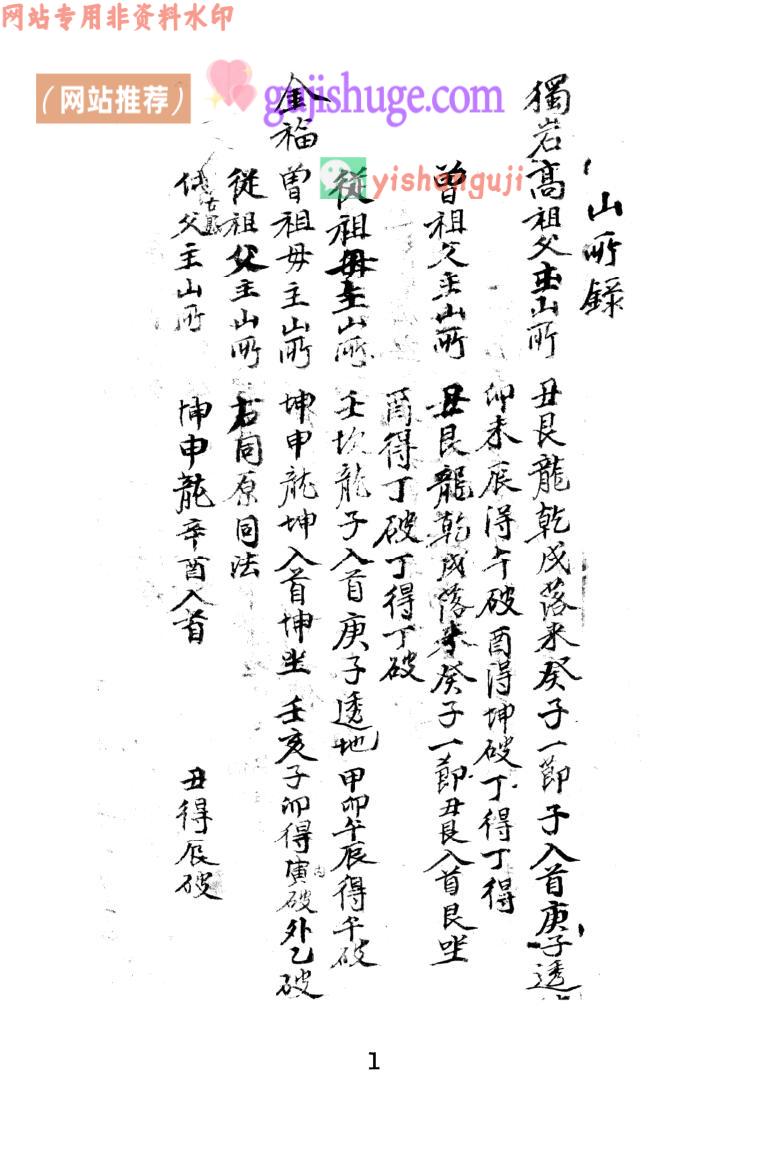 网站专用非资料水印
（网站推荐）
gujishuge.com
yishanguji
山所錄
獨岩高祖父主山所 丑艮龍乾戌落來癸子一節子入首庚子透
卯未辰淂午破酉淂坤破丁淂丁得
曽祖父主山所 丑艮龍乾戌落来癸子一節丑艮入首艮坐
酉得丁破丁得丁破
從祖母主山所 壬坎龍子入首庚子透地甲卯午辰得午破
金福曽祖母主山所 坤申龍坤入首坤坐 壬亥子卯得寅破外乙破
内
從祖父主山所 右同原同法
父主山所 坤申龍辛酉入首 丑得辰破
1